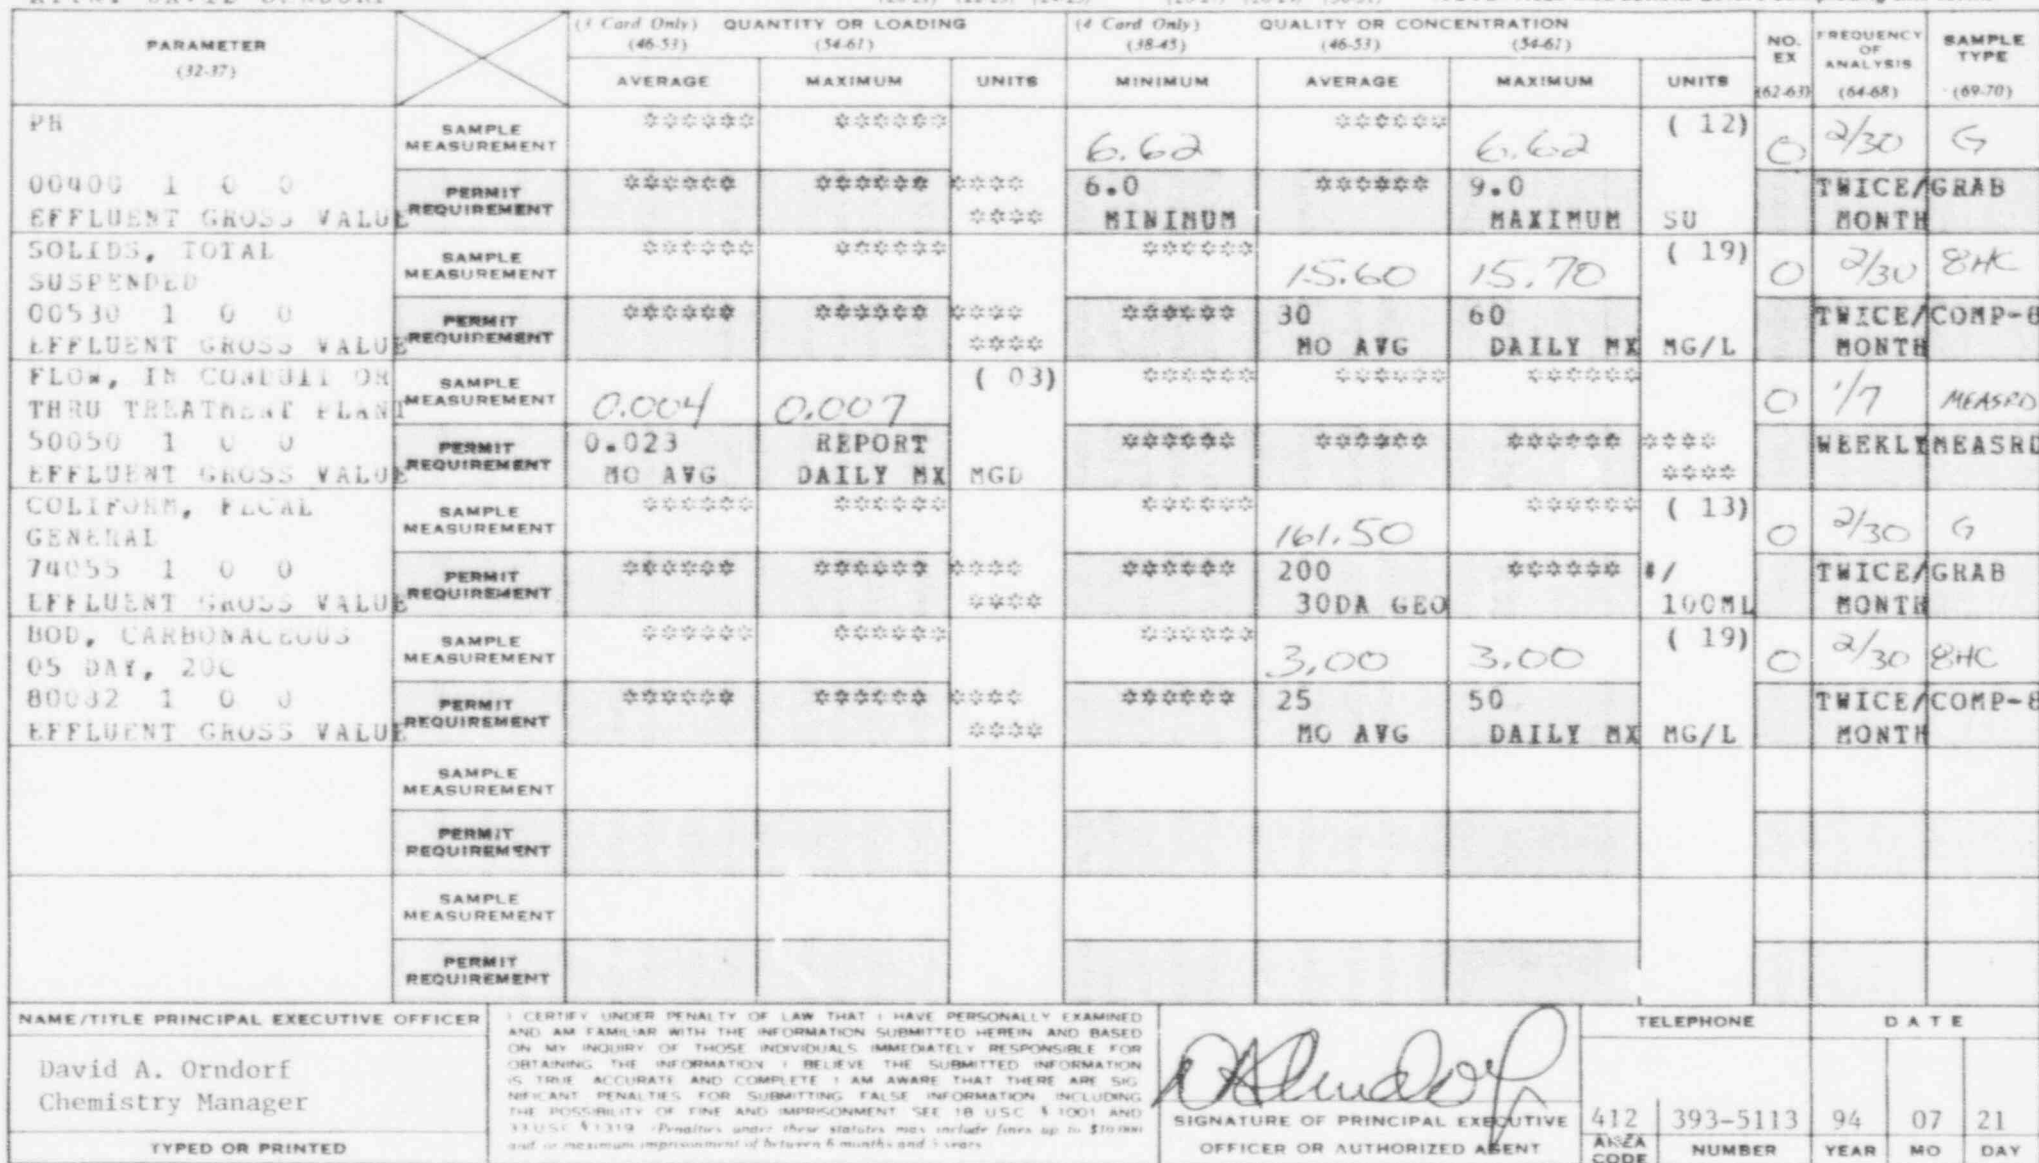 (3 Card Only) QUANTITY OR LOADING
(46-53) (54-61)
(4 Card Only) QUALITY OR CONCENTRATION
(38-45) (46-53) (54-61)
PARAMETER
(32-37)
AVERAGE MAXIMUM UNITS MINIMUM AVERAGE MAXIMUM UNITS
NO. EX
(62-63)
FREQUENCY OF ANALYSIS
(64-68)
SAMPLE TYPE
(69-70)
PH
SAMPLE MEASUREMENT ****** ****** 6.62 ****** 6.62 ( 12) 0 2/30 G
00400 1 0 0
EFFLUENT GROSS VALUE
PERMIT REQUIREMENT ****** ****** **** 6.0 ****** 9.0 TWICE/ GRAB
**** MINIMUM MAXIMUM SU MONTH
SOLIDS, TOTAL
SUSPENDED
SAMPLE MEASUREMENT ****** ****** ****** 15.60 15.70 ( 19) 0 2/30 8HC
00530 1 0 0
EFFLUENT GROSS VALUE
PERMIT REQUIREMENT ****** ****** **** ****** 30 60 TWICE/ COMP-8
**** MO AVG DAILY MX MG/L MONTH
FLOW, IN CONDUIT OR
THRU TREATMENT PLANT
SAMPLE MEASUREMENT 0.004 0.007 ( 03) ****** ****** ****** 0 1/7 MEASRD
50050 1 0 0
EFFLUENT GROSS VALUE
PERMIT REQUIREMENT 0.023 REPORT ****** ****** ****** **** WEEKLY MEASRD
MO AVG DAILY MX MGD ****
COLIFORM, FECAL
GENERAL
SAMPLE MEASUREMENT ****** ****** ****** 161.50 ****** ( 13) 0 2/30 G
74055 1 0 0
EFFLUENT GROSS VALUE
PERMIT REQUIREMENT ****** ****** **** ****** 200 ****** #/ TWICE/ GRAB
**** 30DA GEO 100ML MONTH
BOD, CARBONACEOUS
05 DAY, 20C
SAMPLE MEASUREMENT ****** ****** ****** 3.00 3.00 ( 19) 0 2/30 8HC
80082 1 0 0
EFFLUENT GROSS VALUE
PERMIT REQUIREMENT ****** ****** **** ****** 25 50 TWICE/ COMP-8
**** MO AVG DAILY MX MG/L MONTH
SAMPLE MEASUREMENT
PERMIT REQUIREMENT
SAMPLE MEASUREMENT
PERMIT REQUIREMENT
NAME/TITLE PRINCIPAL EXECUTIVE OFFICER
David A. Orndorf
Chemistry Manager
TYPED OR PRINTED
I CERTIFY UNDER PENALTY OF LAW THAT I HAVE PERSONALLY EXAMINED
AND AM FAMILIAR WITH THE INFORMATION SUBMITTED HEREIN AND BASED
ON MY INQUIRY OF THOSE INDIVIDUALS IMMEDIATELY RESPONSIBLE FOR
OBTAINING THE INFORMATION I BELIEVE THE SUBMITTED INFORMATION
IS TRUE ACCURATE AND COMPLETE I AM AWARE THAT THERE ARE SIG
NIFICANT PENALTIES FOR SUBMITTING FALSE INFORMATION INCLUDING
THE POSSIBILITY OF FINE AND IMPRISONMENT SEE 18 USC § 1001 AND
33 USC § 1319 (Penalties under these statutes may include fines up to $10,000
and or maximum imprisonment of between 6 months and 5 years
SIGNATURE OF PRINCIPAL EXECUTIVE
OFFICER OR AUTHORIZED AGENT
TELEPHONE
412 393-5113
AREA CODE NUMBER
DATE
94 07 21
YEAR MO DAY